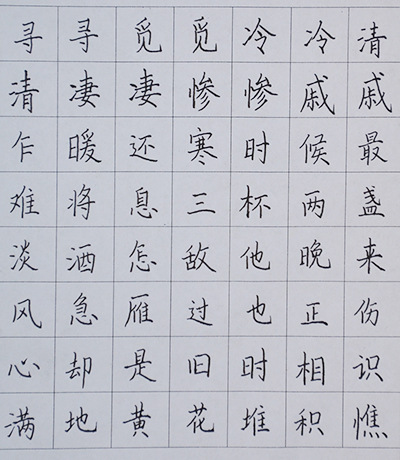 寻寻觅觅冷冷清
清凄凄惨惨戚戚
乍暖还寒时候最
难将息三杯两盏
淡酒怎敌他晚来
风急雁过也正伤
心却是旧时相识
满地黄花堆积憔